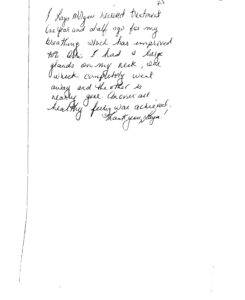 I Kaye received treatment
one year and a half ago for my
breathing which has improved
I had 2 large
glands on my neck, one
which completely went
away and the other is
nearly gone. An over all
healthy feeling was achieved.
Thank you,